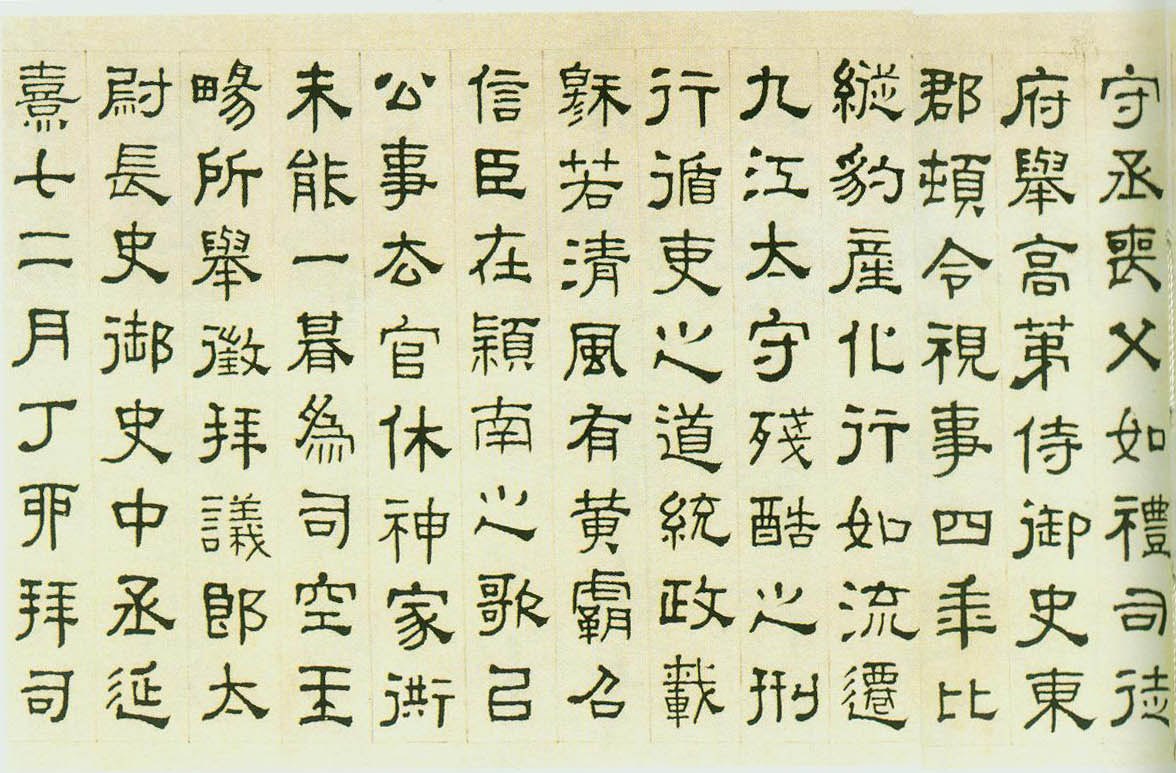 守丞喪父如禮司徒
府舉高苐侍御史東
郡頓令視事四年比
縱豹產化行如流遷
九江太守殘酷之刑
行循吏之道統政載
穆若清風有黃霸召
信臣在潁南之歌㠯
公事去官休神家衖
未能一朞為司空王
畼所舉徵拜議郎太
尉長史御史中丞延
熹七二月丁卯拜司